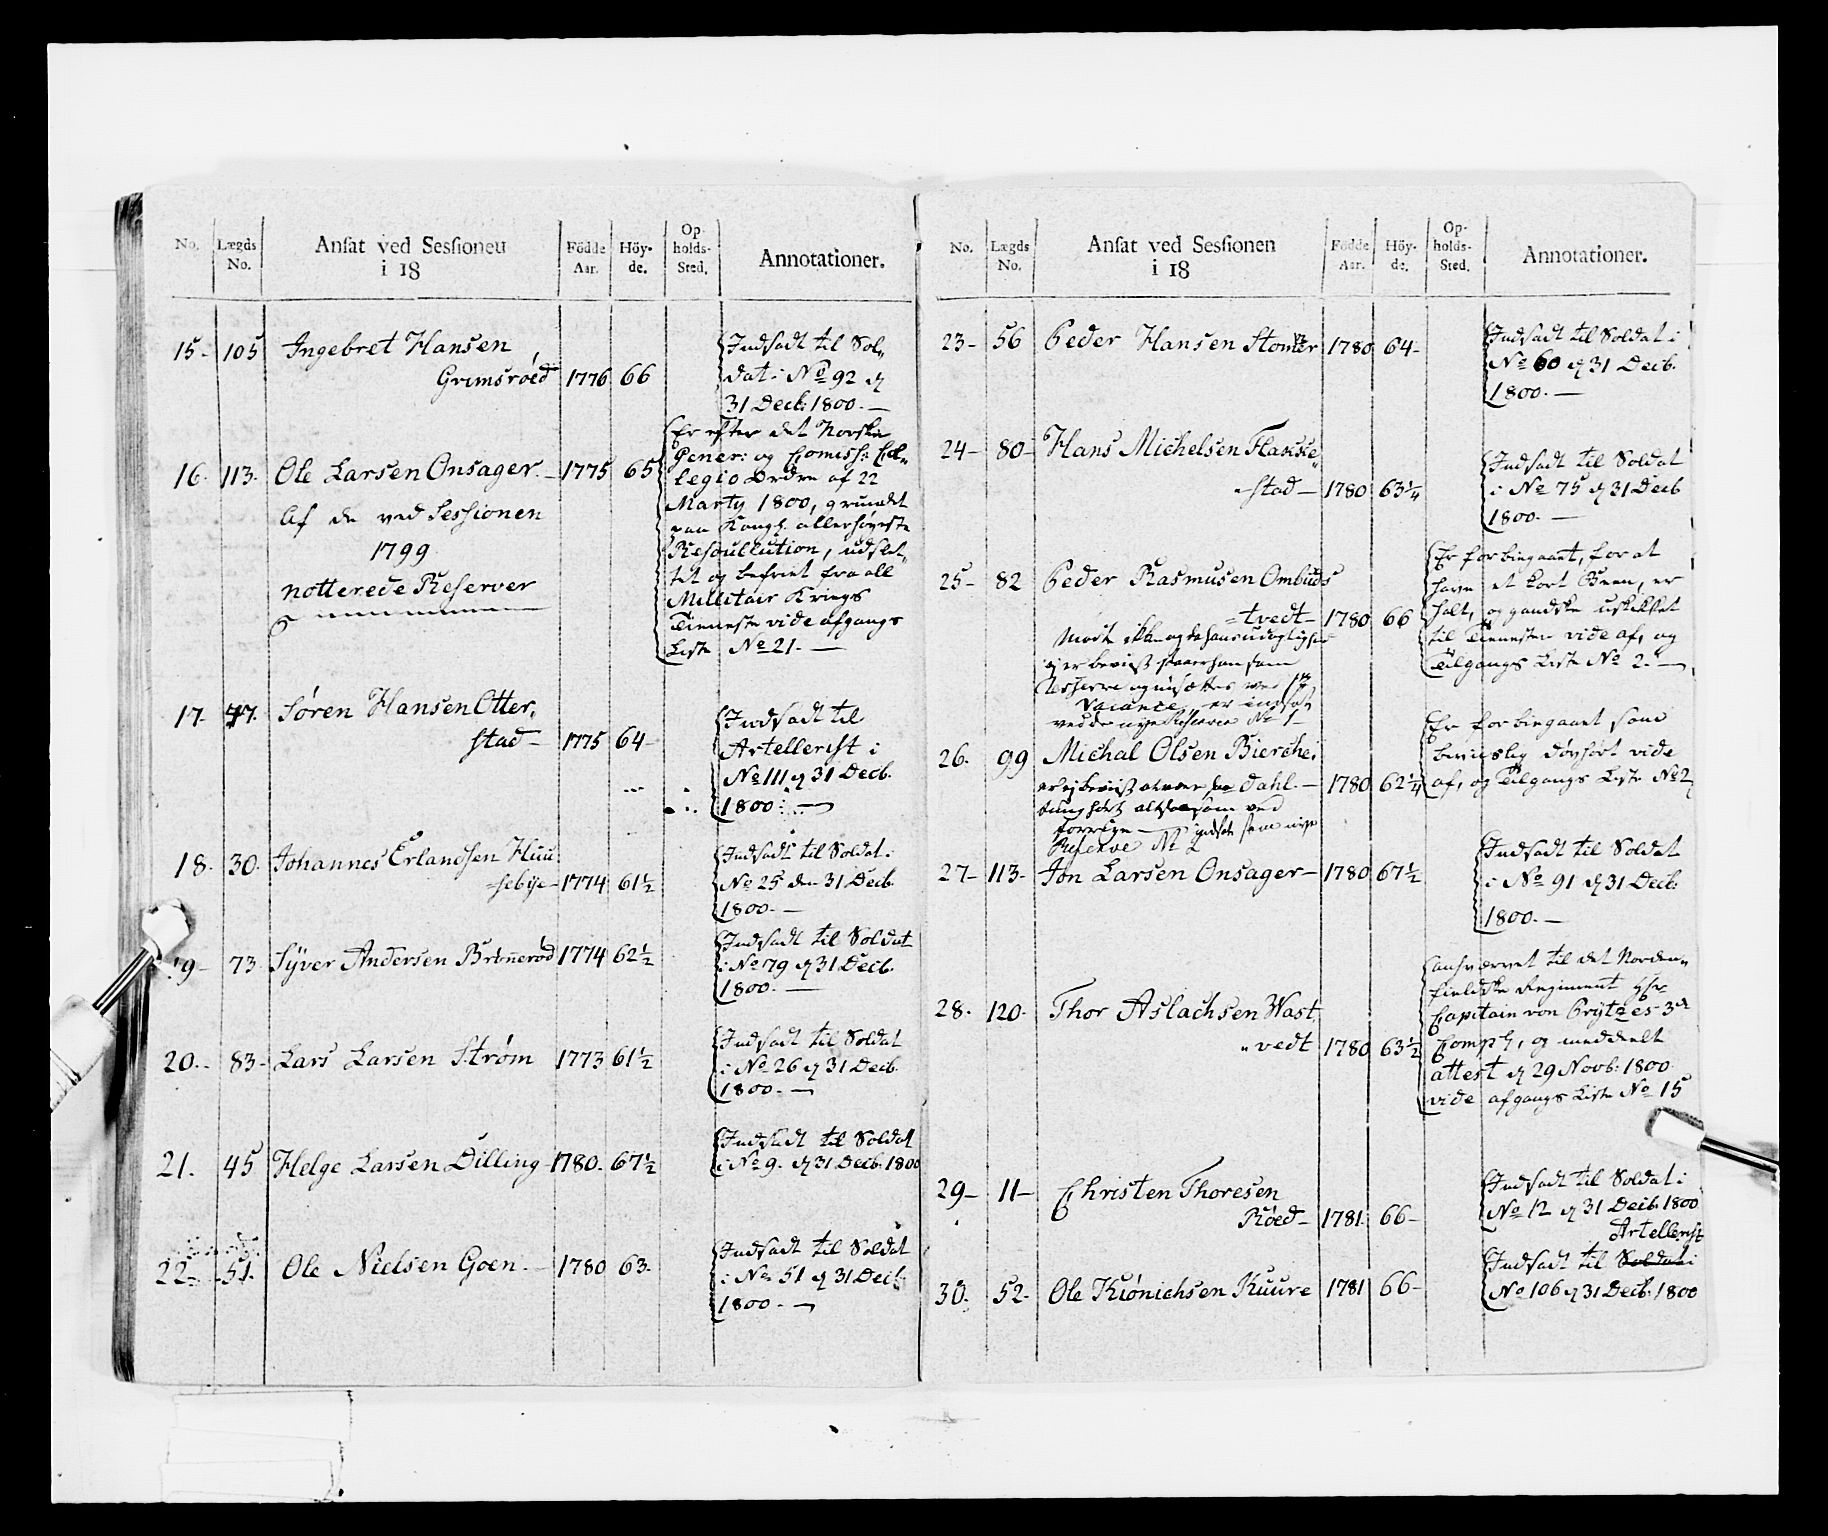 No. Lægds No. Ansat ved Sessionen i 18 Födde Aar. Höyde. Opholds-Sted. Annotationer.
15- 105 Ingebret Hansen
Grimsröed 1776 66
Indsadt til Sol„
dat i No 92 d
31 Decb: 1800. —
16. 113. Ole Larsen Onsager. - 1775 65
Af de ved Sessionen
1799
notterede Reserver
Er efter det Norske
Gener: og Comiss: Col„
legio Ordre af 22
Marty 1800, grundet
paa Kongl. allerhöyeste
Resoulution, udslet„
tet og befriet fra all
Millitair Kriegs
Tieneste vide afgangs
Liste No 21. —
17. 47. Sören Hansen Otter„
stad - 1775 64-
Indsadt til
Artellerist i
No 111 d 31 Decb.
1800. —
18. 30. Johannes Erlandsen Huu„
sebye - 1774 61½
Indsadt til Soldat i
No 25 den 31 Decb.
1800. —
19- 73. Syver Andersen Brönneröd 1774 62½
Indsadt til Soldat
i No 79 d 31 Decb.
1800. —
20.. 83- Lars Larsen Ström 1773 61½
Indsadt til Soldat
i No 26 d 31 Decb.
1800. —
21. 45 Helge Larsen Dilling - 1780. 67½
Indsadt til Soldat
i No 9. d 31 Decb. 1800
22. 51. Ole Nielsen Goen. - 1780 63.
Indsadt til Soldat
i No 51 d 31 Decb.
1800. —
No. Lægds No. Ansat ved Sessionen i 18 Födde Aar. Höyde. Opholds-Sted. Annotationer.
23- 56 Peder Hansen 1780 64-
Indsadt til Soldat i
No 60 d 31 Decb.
1800. —
24- 80- Hans Michelsen Flakke„
„stad — 1780 63¼
Indsadt til Soldat
i No 75 d 31 Decb
1800. —
25- 82 Peder Rasmusen Ombuds
=tvedt- 1780 66
Mödt ikke og da hans udygtighed
ej er beviist staaer han som
Vacance, er indsat
ved de nye Reserver No 1-
Er forbiegaaet, for at
have et kort Been, er
halt, og gandske uskikket
til Tienesten vide af, og
Tilgangs Liste No 2. —
26. 99 Michal Olsen Bierche„
Dahl. - 1780 62¼
er ej beviist at være
tunghört altsaa som ved
forrige — indsat som nye
Reserve No 2
Er forbiegaaet som
beviislig dövhört vide
af, og Tilgangs Liste No 2
27- 113- Jon Larsen Onsager - 1780 67½
Indsadt til Soldat
i No 91 d 31 Decb:
1800. —
28. 120. Thor Aslachsen Wast„
„vedt 1780 63½
anhværvet til det Norden„
fieldske Regiment
Capitain von Prytzes 3de
Comp:, og meddeelt
attest d 29 Novb: 1800.
vide afgangs Liste No 15
29- 11- Christen Thoresen
Röed- 1781. 66-
Indsadt til Soldat i
No 12 d 31 Decb. 1800
30. 52- Ole Kiönichsen Kuure 1781 66-
Artellerist
Indsadt til Soldat i
No 106 d 31 Decb. 1800